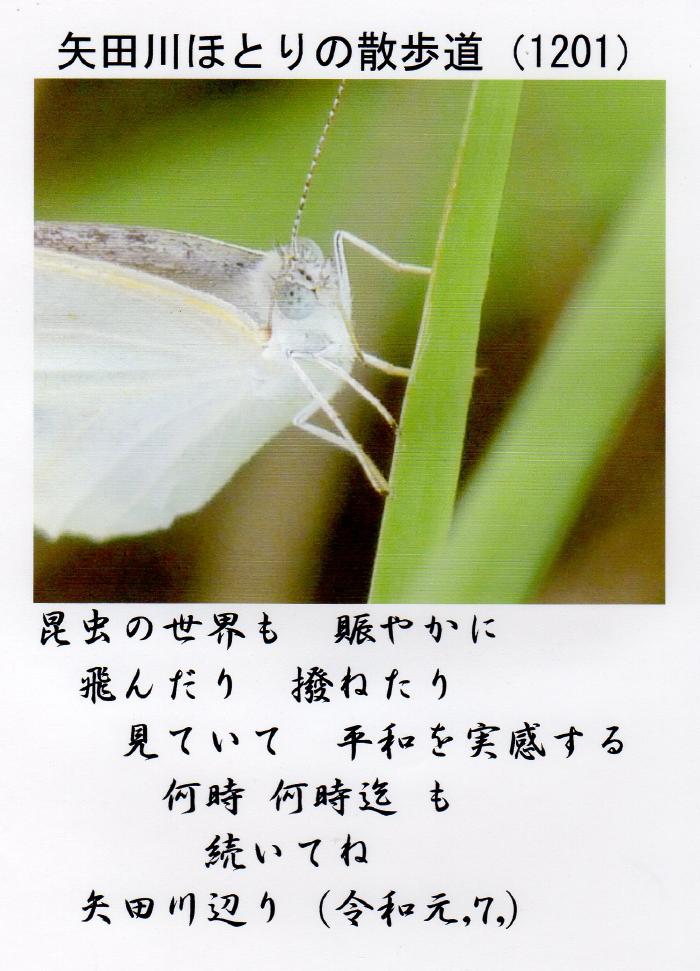 矢田川ほとりの散歩道（1201）
昆虫の世界も　賑やかに
飛んだり　撥ねたり
見ていて　平和を実感する
何時 何時迄 も
続いてね
矢田川辺り（令和元,7,）